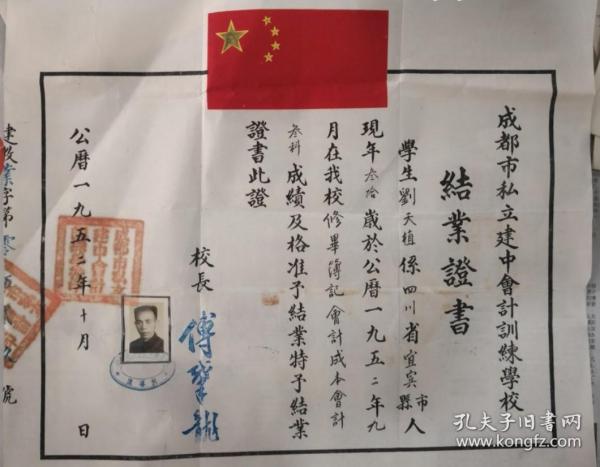 成都市私立建中會計訓練學校
結業證書
學生劉天植係四川省宜宾市縣人
現年叁拾歲於公曆一九五二年九
月在我校修畢簿記會計成本會計
叁科成績及格准予結業特予結業
證書此證
校長
公曆一九五二年十月 日
建政業字第零
號
孔夫子旧书网
www.kongfz.com